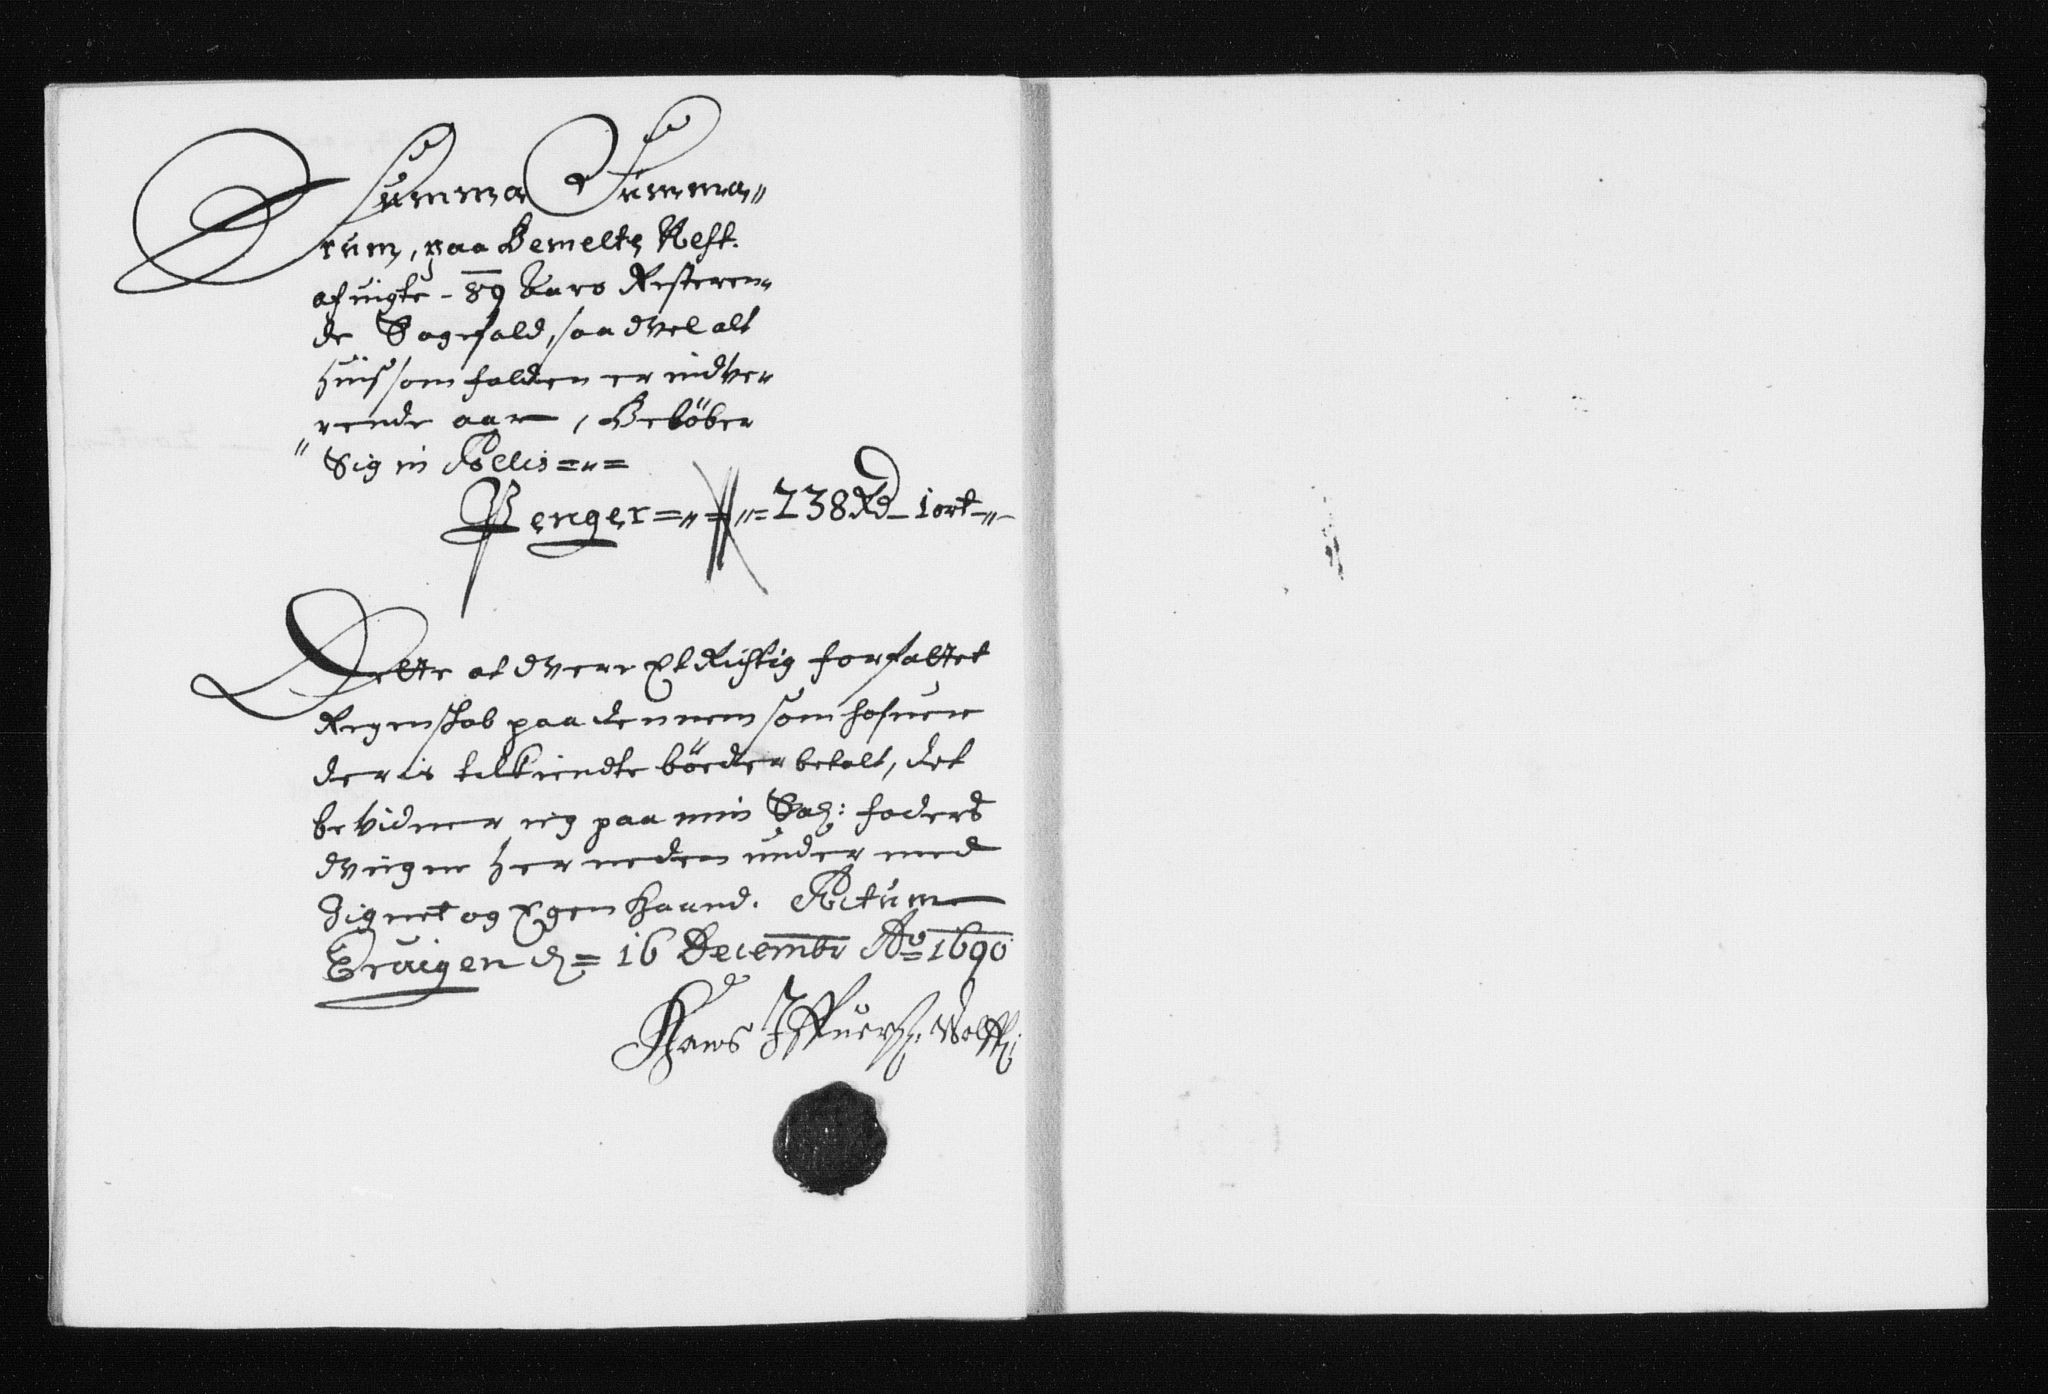 Summa Summa„
rum, paa Bemelte Rest.
afuigte - 89 Aars Resteren„
de Sagefald, saa Vel alt
huis som falden er indVe„
rende aar, Beløber
„ Sig in Alles =„=
Penger =„ = „= 238 Rd_ 1 ort -„-
Dette at Vere Et Richtig forfattet
Regenskab paa dennem som hafuer
deris tilkiendte böeder betalt, det
beVidner ieg paa min Sal: faders
Vegne her neden under med
Zignet og Egen Haand. Actum
Eruigen d= 16 Decembr Ao 1690
Hans Wolffs: